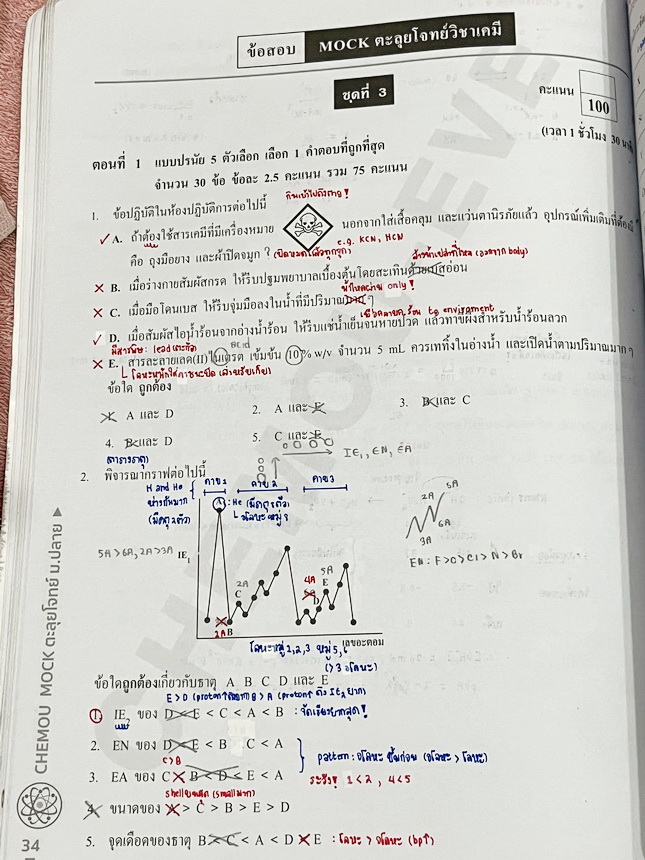 ข้อสอบ MOCK ตะลุยโจทย์วิชาเคมี
ชุดที่ 3
คะแนน
100
(เวลา 1 ชั่วโมง 30 นาที
ตอนที่ 1 แบบปรนัย 5 ตัวเลือก เลือก 1 คำตอบที่ถูกที่สุด
จำนวน 30 ข้อ ข้อละ 2.5 คะแนน รวม 75 คะแนน
1. ข้อปฏิบัติในห้องปฏิบัติการต่อไปนี้
กินเข้าไปถึงตาย!
✓ A. ถ้าต้องใช้สารเคมีที่มีเครื่องหมาย นอกจากใส่เสื้อคลุม และแว่นตานิรภัยแล้ว อุปกรณ์เพิ่มเติมที่ต้อง
e.g. KCN, HCN
คือ ถุงมือยาง และผ้าปิดจมูก ?
X B. เมื่อร่างกายสัมผัสกรด ให้รีบปฐมพยาบาลเบื้องต้นโดยสะเทินด้วยเบสอ่อน
น้ำไหลผ่าน only!
X C. เมื่อมือโดนเบส ให้รีบจุ่มมือลงในน้ำที่มีปริมาณมาก ๆ
✓ D. เมื่อสัมผัสไอน้ำร้อนจากอ่างน้ำร้อน ให้รีบแช่น้ำเย็นจนหายปวด แล้วทาขี้ผึ้งสำหรับน้ำร้อนลวก
X E. สารละลายเลด(II)ไนเตรต เข้มข้น 10% w/v จำนวน 5 mL ควรเททิ้งในอ่างน้ำ และเปิดน้ำตามปริมาณมาก ๆ
ข้อใด ถูกต้อง
1. A และ D 2. A และ E 3. B และ C
4. B และ D 5. C และ E
IE₁, EN, EA
(ตารางธาตุ)
2. พิจารณากราฟต่อไปนี้
H and He คาบ 1 คาบ 2 คาบ 3
ห่างกันมาก
(มีแค่ 2 ตัว)
A : He
5A
2A
6A
3A
5A > 6A, 2A > 3A IE₁
EN : F > O > Cl > N > Br
2A C 4A 5A E D
1A B
เลขอะตอม
โลหะหมู่ 1, 2, 3 หมู่ 5, 6
ข้อใดถูกต้องเกี่ยวกับธาตุ A B C D และ E
1. IE₂ ของ D < E < C < A < B : จัดเรียงยากสุด!
2. EN ของ D < E < B C < A
C > B
pattern : อโลหะ ขึ้นก่อน (อโลหะ > โลหะ)
3. EA ของ C < B < D < E < A ระวัง! 1 < 2, 4 < 5
4. ขนาดของ A > C > B > E > D
5. จุดเดือดของธาตุ B < C < A < D < E : โลหะ > อโลหะ (bp↑)
CHEMOU MOCK ตะลุยโจทย์ ม.ปลาย
34